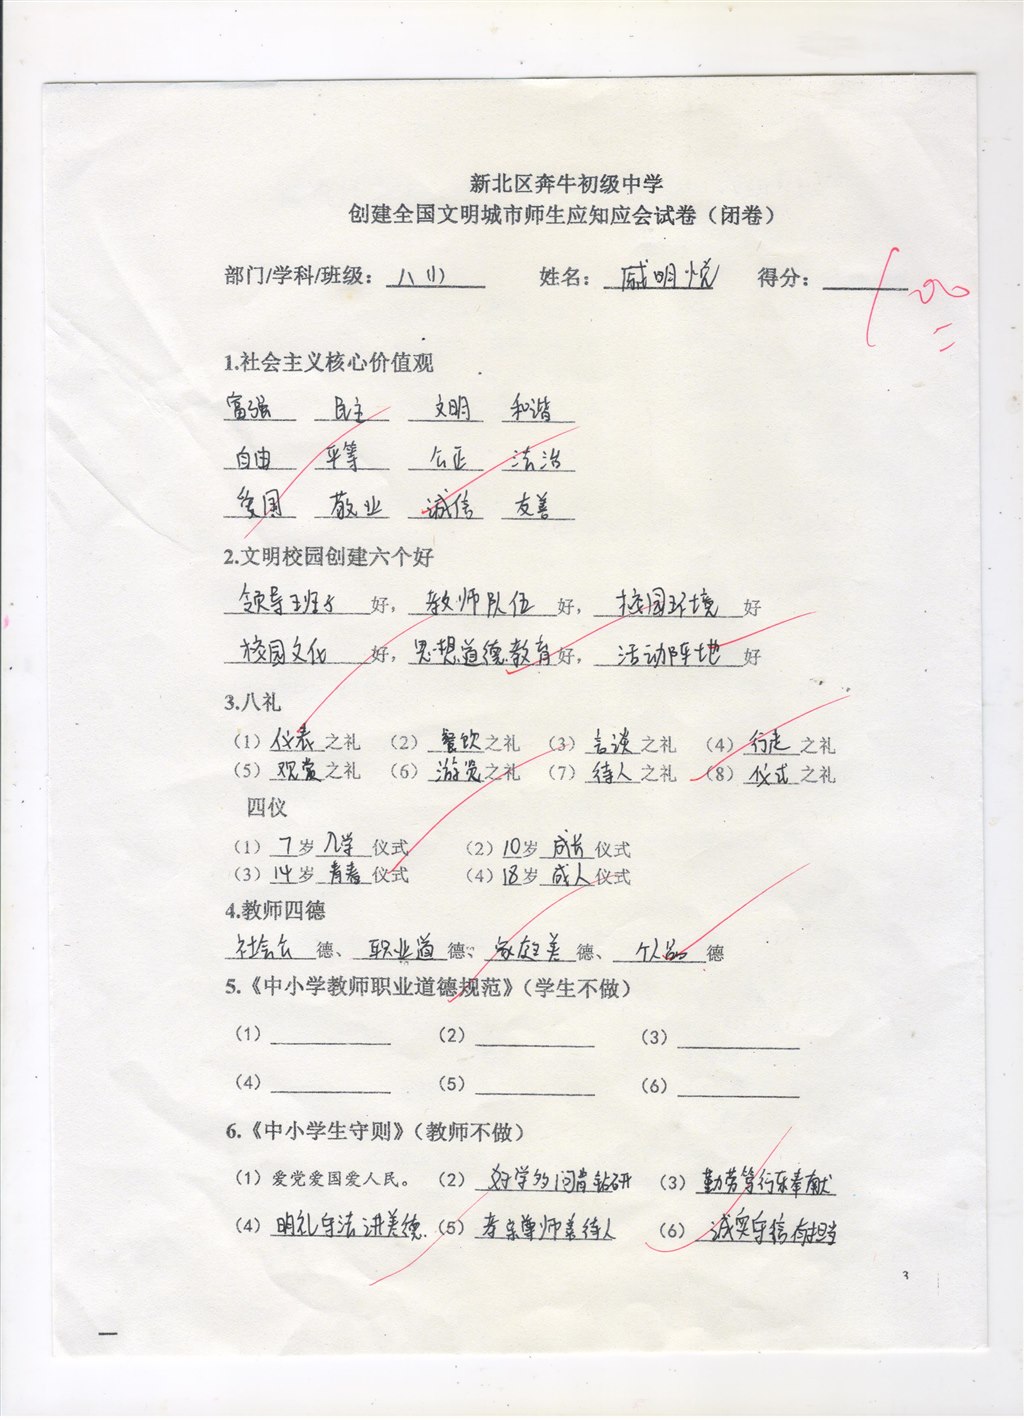 新北区奔牛初级中学
创建全国文明城市师生应知应会试卷（闭卷）
部门/学科/班级：八(1) 姓名：戚明悦 得分：100
1.社会主义核心价值观
富强 民主 文明 和谐
自由 平等 公正 法治
爱国 敬业 诚信 友善
2.文明校园创建六个好
领导班子 好， 教师队伍 好， 校园环境 好
校园文化 好， 思想道德教育 好， 活动阵地 好
3.八礼
（1）仪表之礼 （2）餐饮之礼 （3）言谈之礼 （4）行走之礼
（5）观赏之礼 （6）游览之礼 （7）待人之礼 （8）仪式之礼
四仪
（1）7岁入学仪式 （2）10岁成长仪式
（3）14岁青春仪式 （4）18岁成人仪式
4.教师四德
社会公德、 职业道德、 家庭美德、 个人品德
5.《中小学教师职业道德规范》（学生不做）
（1） （2） （3）
（4） （5） （6）
6.《中小学生守则》（教师不做）
（1）爱党爱国爱人民。 （2）好学多问肯钻研 （3）勤劳笃行乐奉献
（4）明礼守法讲美德. （5）孝亲尊师善待人 （6）诚实守信有担当
3